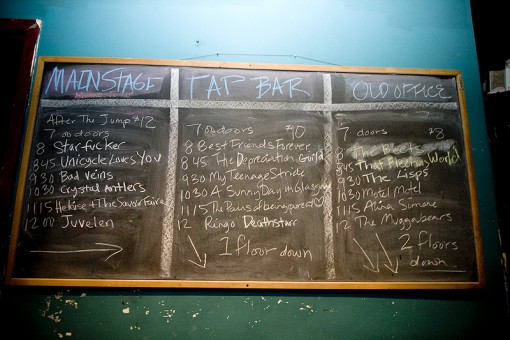 MAINSTAGE
After The Jump $12
7 00 doors
8 Starfucker
8 45 Unicycle Loves You
9 30 Bad Veins
10 30 Crystal Antlers
11 15 Heloise + The Savoir Faire
12 00 Juvelen
TAP BAR
7 00 doors $10
8 Best Friends Forever
8 45 The Depreciation Guild
9 30 My Teenage Stride
10 30 A Sunny Day in Glasgow
11 15 The Pains of being pure @ heart
12 Ringo Deathstarr
1 floor down
OLD OFFICE
7 doors $8
8 The
8 45 That Fleeting World
9 30 The Lisps
10 30 Motel Motel
11 15 Alina Simone
12 The Muggabears
2 floors
down